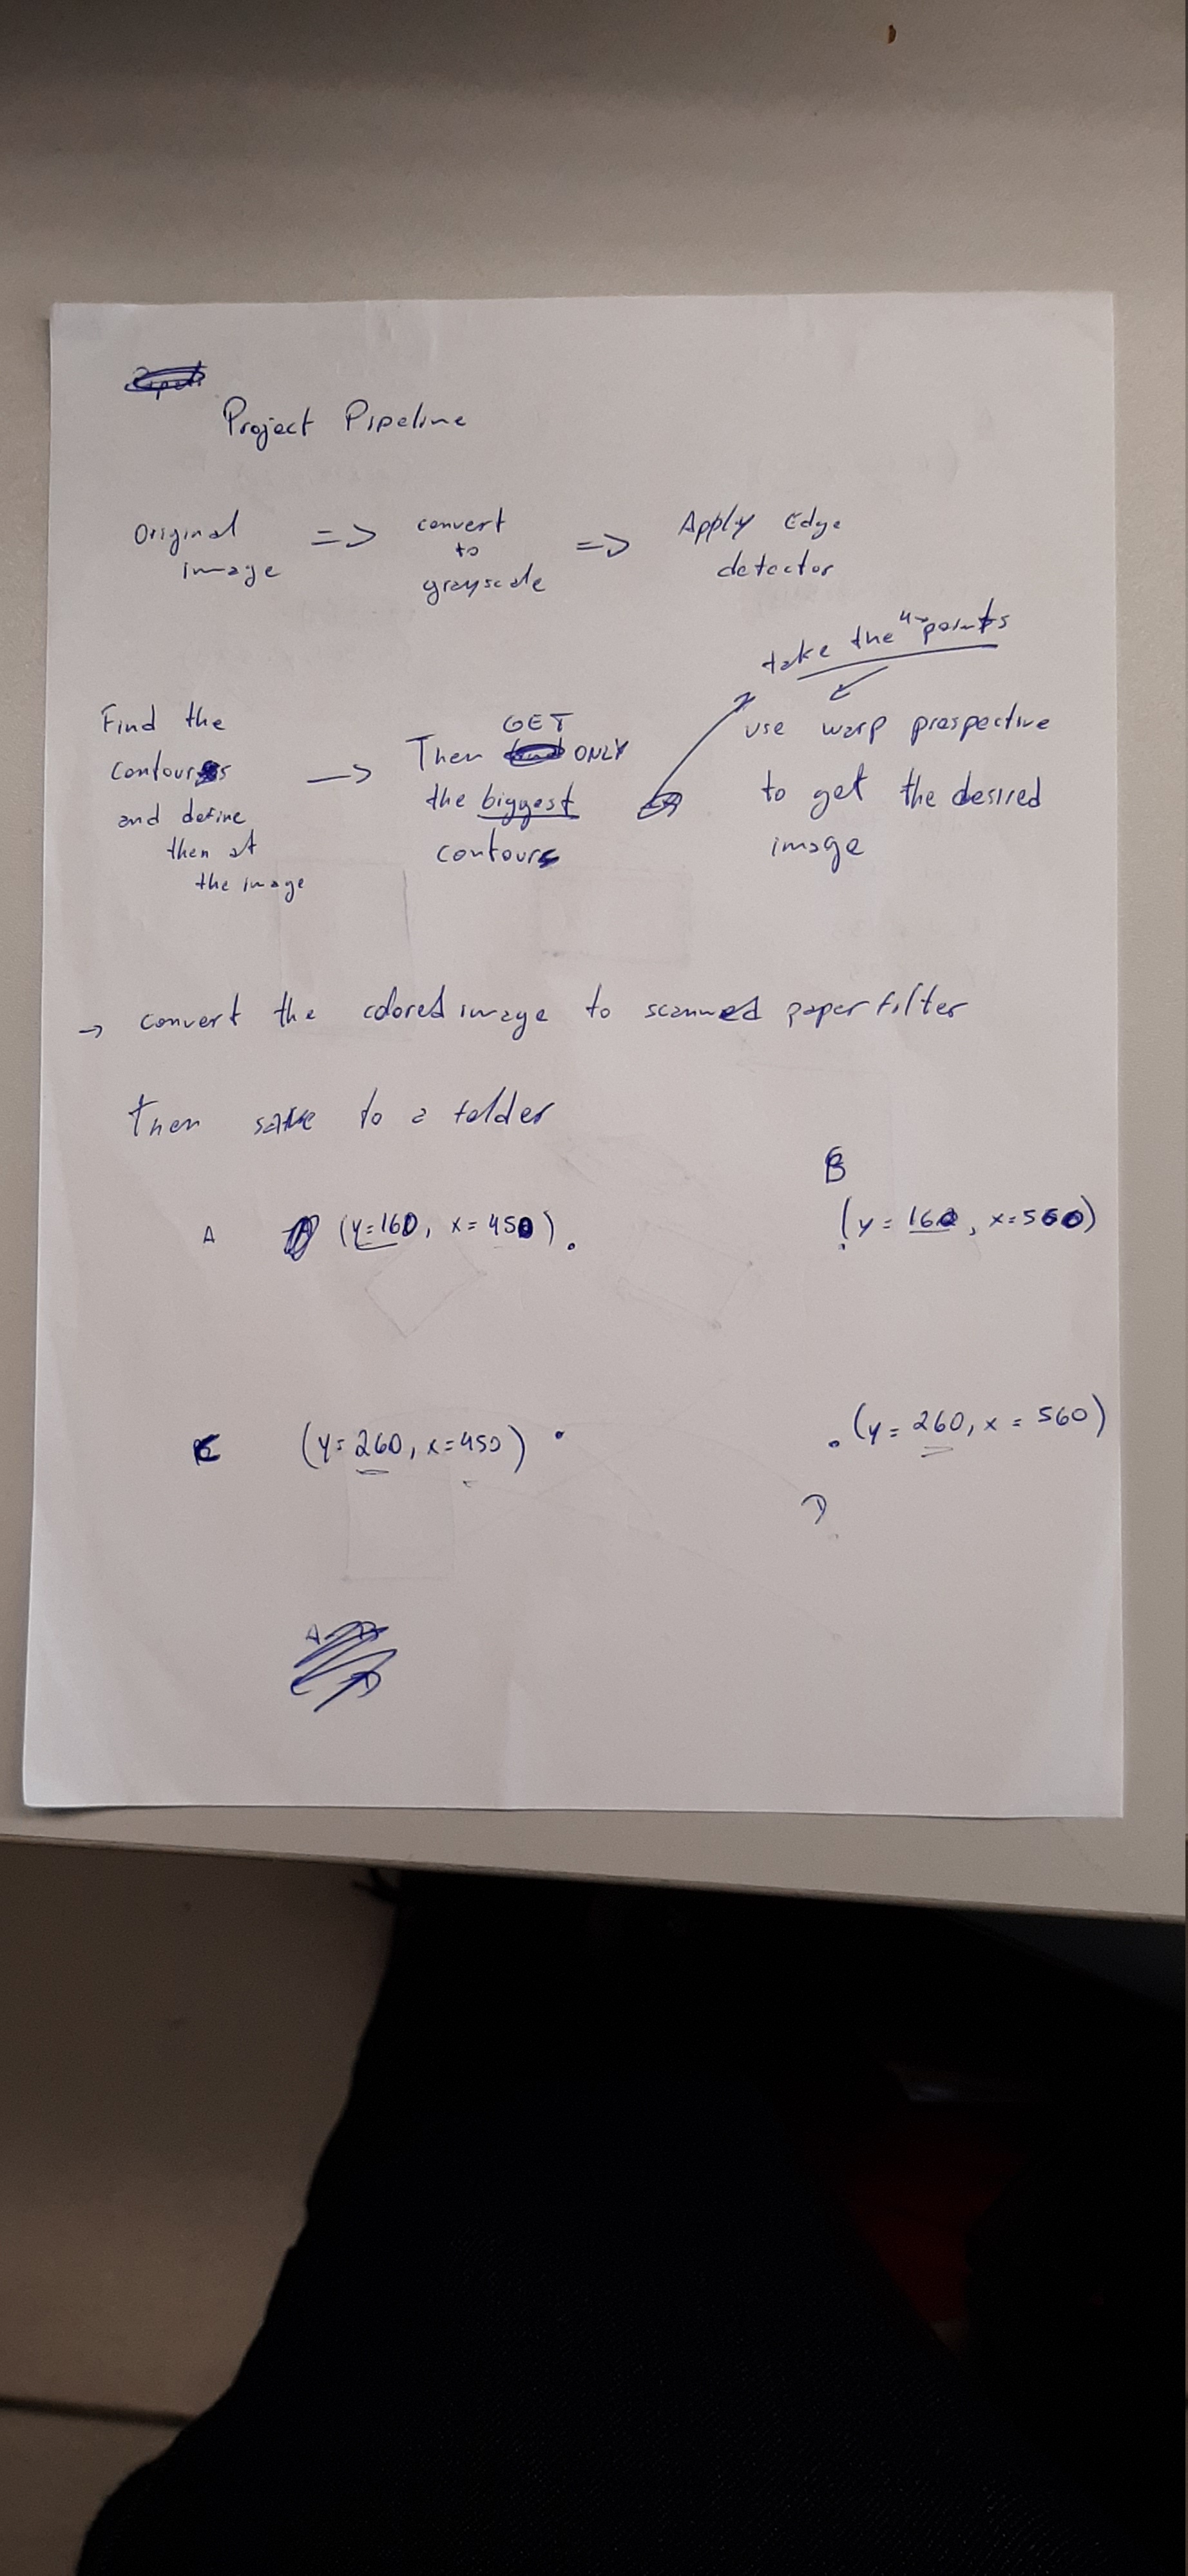 Project Pipeline
Original image => convert to grayscale => Apply Edge detector
take the 4 points
Find the contours and define then at the image -> Then GET ONLY the biggest contours
use warp prospective to get the desired image
-> convert the colored image to scanned paper filter
then save to a folder
B
A (y=160, x=450) . (y=160, x=560)
C (y=260, x=450) . . (y=260, x=560)